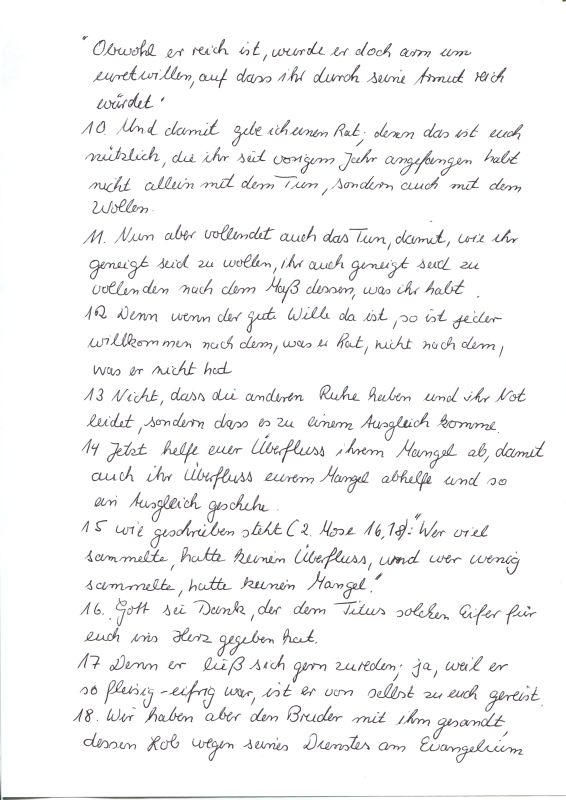 "Obwohl er reich ist, wurde er doch arm um
euretwillen, auf dass ihr durch seine Armut reich
würdet'
10. Und damit gebe ich einen Rat; denn das ist euch
nützlich, die ihr seit vorigem Jahr angefangen habt
nicht allein mit dem Tun, sondern auch mit dem
Wollen.
11. Nun aber vollendet auch das Tun, damit, wie ihr
geneigt seid zu wollen, ihr auch geneigt seid zu
vollenden nach dem Maß dessen, was ihr habt.
12 Denn wenn der gute Wille da ist, so ist jeder
willkommen nach dem, was er hat, nicht nach dem,
was er nicht hat
13 Nicht, dass die anderen Ruhe haben und ihr Not
leidet, sondern dass es zu einem Ausgleich komme.
14 Jetzt helfe euer Überfluss ihrem Mangel ab, damit
auch ihr Überfluss eurem Mangel abhelfe und so
ein Ausgleich geschehe.
15 wie geschrieben steht (2. Mose 16,18): "Wer viel
sammelte, hatte keinen Überfluss, und wer wenig
sammelte, hatte keinen Mangel."
16. Gott sei Dank, der dem Titus solchen Eifer für
euch ins Herz gegeben hat.
17 Denn er ließ sich gern zureden; ja, weil er
so fleisig-eifrig war, ist er von selbst zu euch gereist.
18. Wir haben aber den Bruder mit ihm gesandt,
dessen Lob wegen seines Dienstes am Evangelium